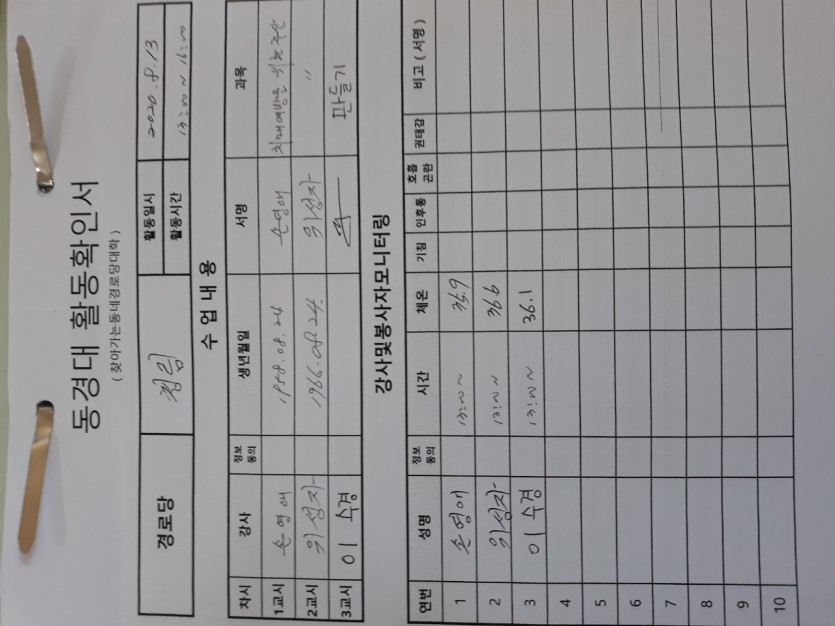 동경대 활동확인서
( 찾아가는동네경로당대학 )
경로당 청림 활동일시 2020.8.13
활동시간 13:00~16:00
수업내용
차시 강사 정보동의 생년월일 서명 과목
1교시 손영애 1958.08.24 손영애 치매예방을
2교시 위성자 1966.08.24. 위성자 〃
3교시 이수경 만들기
강사및봉사자모니터링
연번 성명 정보동의 시간 체온 기침 인후통 호흡곤란 권태감 비고 ( 서명 )
1 손영애 13:00~ 35.9
2 위성자 13:00~ 36.6
3 이수경 13:00~ 36.1
4
5
6
7
8
9
10